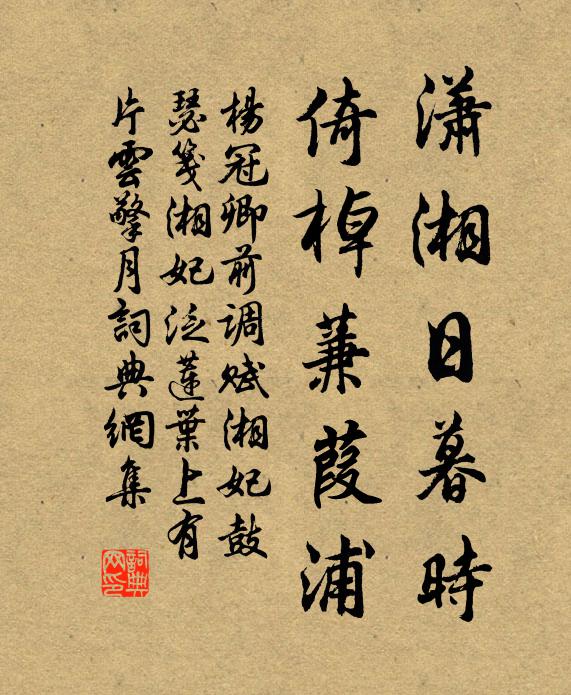 瀟湘日暮時
倚棹蒹葭浦
楊冠卿前调赋湘妃鼓
瑟箋湘妃泛蓮葉上有
片雲擎月詞典網集
詞典
网印